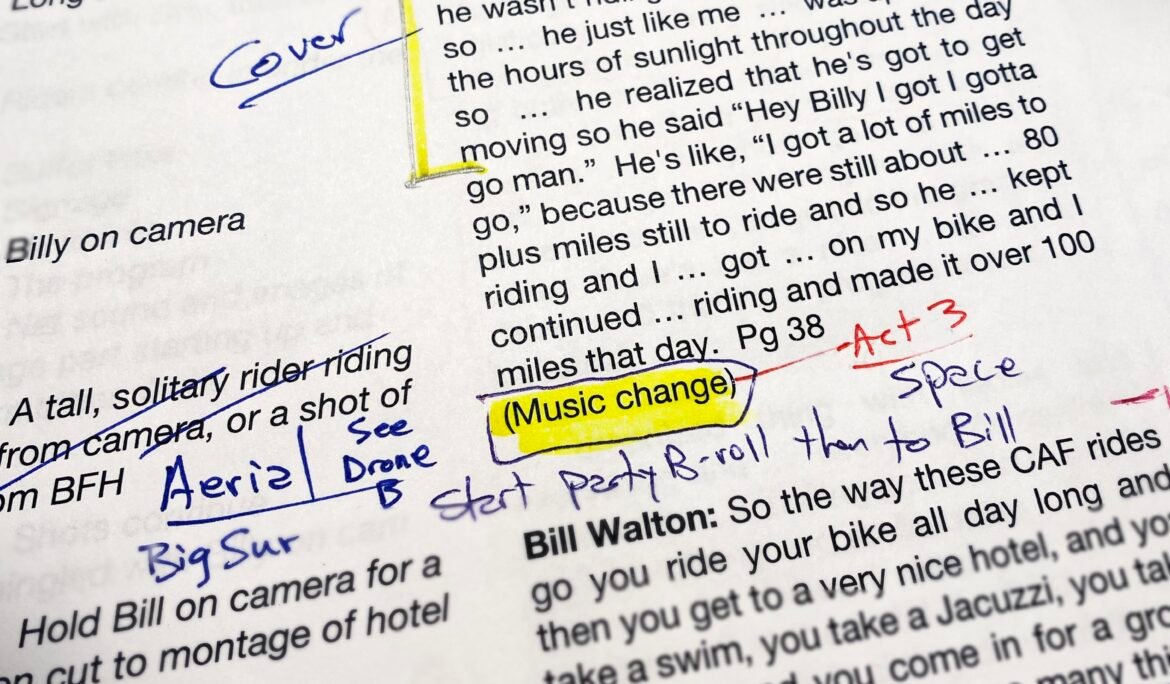 Cover
Billy on camera
A tall, solitary rider riding
from camera, or a shot of
BFH
Aerial
See
Drone
B
Big Sur
Hold Bill on camera for a
cut to montage of hotel
he wasn't
so … he just like me …
the hours of sunlight throughout the day
so … he realized that he's got to get
moving so he said “Hey Billy I got I gotta
go man.” He's like, “I got a lot of miles to
go,” because there were still about … 80
plus miles still to ride and so he … kept
riding and I … got … on my bike and I
continued … riding and made it over 100
miles that day. Pg 38
Act 3
(Music change)
Space
Start party B-roll then to Bill
Bill Walton: So the way these CAF rides
go you ride your bike all day long and
then you get to a very nice hotel, and
take a swim, you take a Jacuzzi, you
you come in for a
many